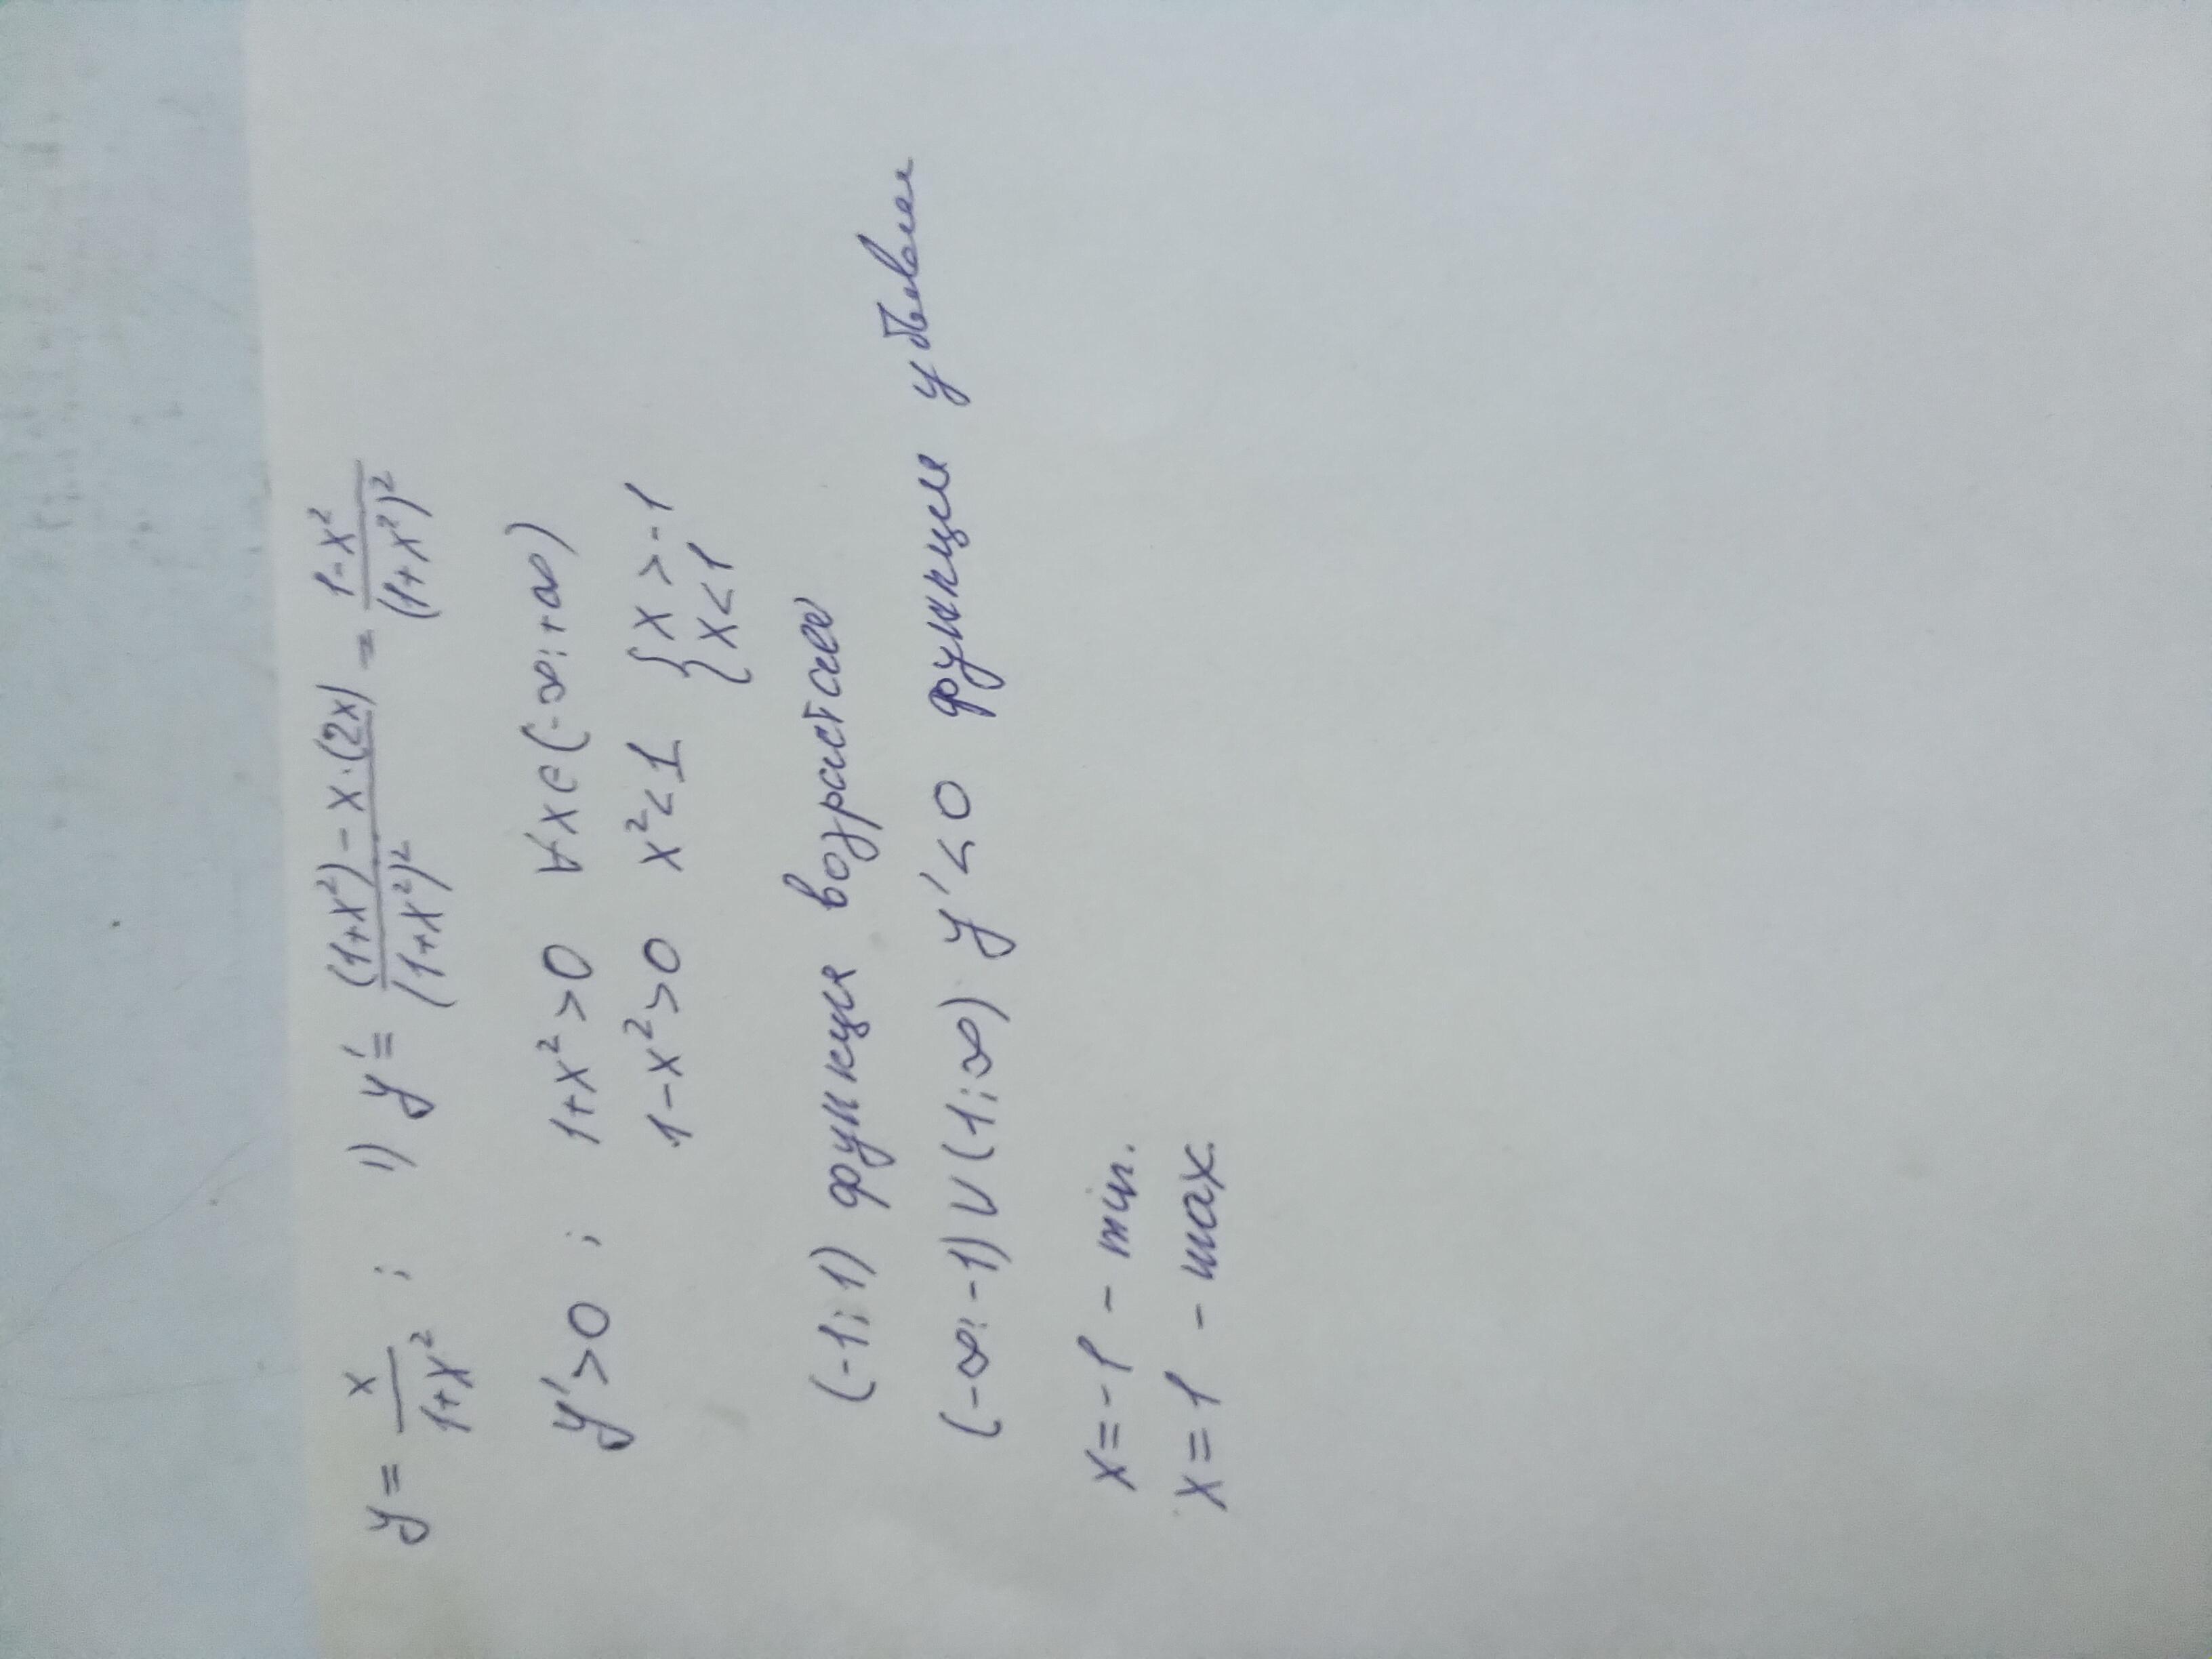 y = x/(1+x²) ; 1) y' = ((1+x²) - x·(2x))/(1+x²)² = (1-x²)/(1+x²)²
y'>0 ; 1+x²>0 ∀x∈(-∞;+∞)
1-x²>0 x²<1 {x>-1
{x<1
(-1;1) функция возрастает
(-∞;-1)∨(1;∞) y'<0 функция убывает
x=-1 - min.
x=1 - max.